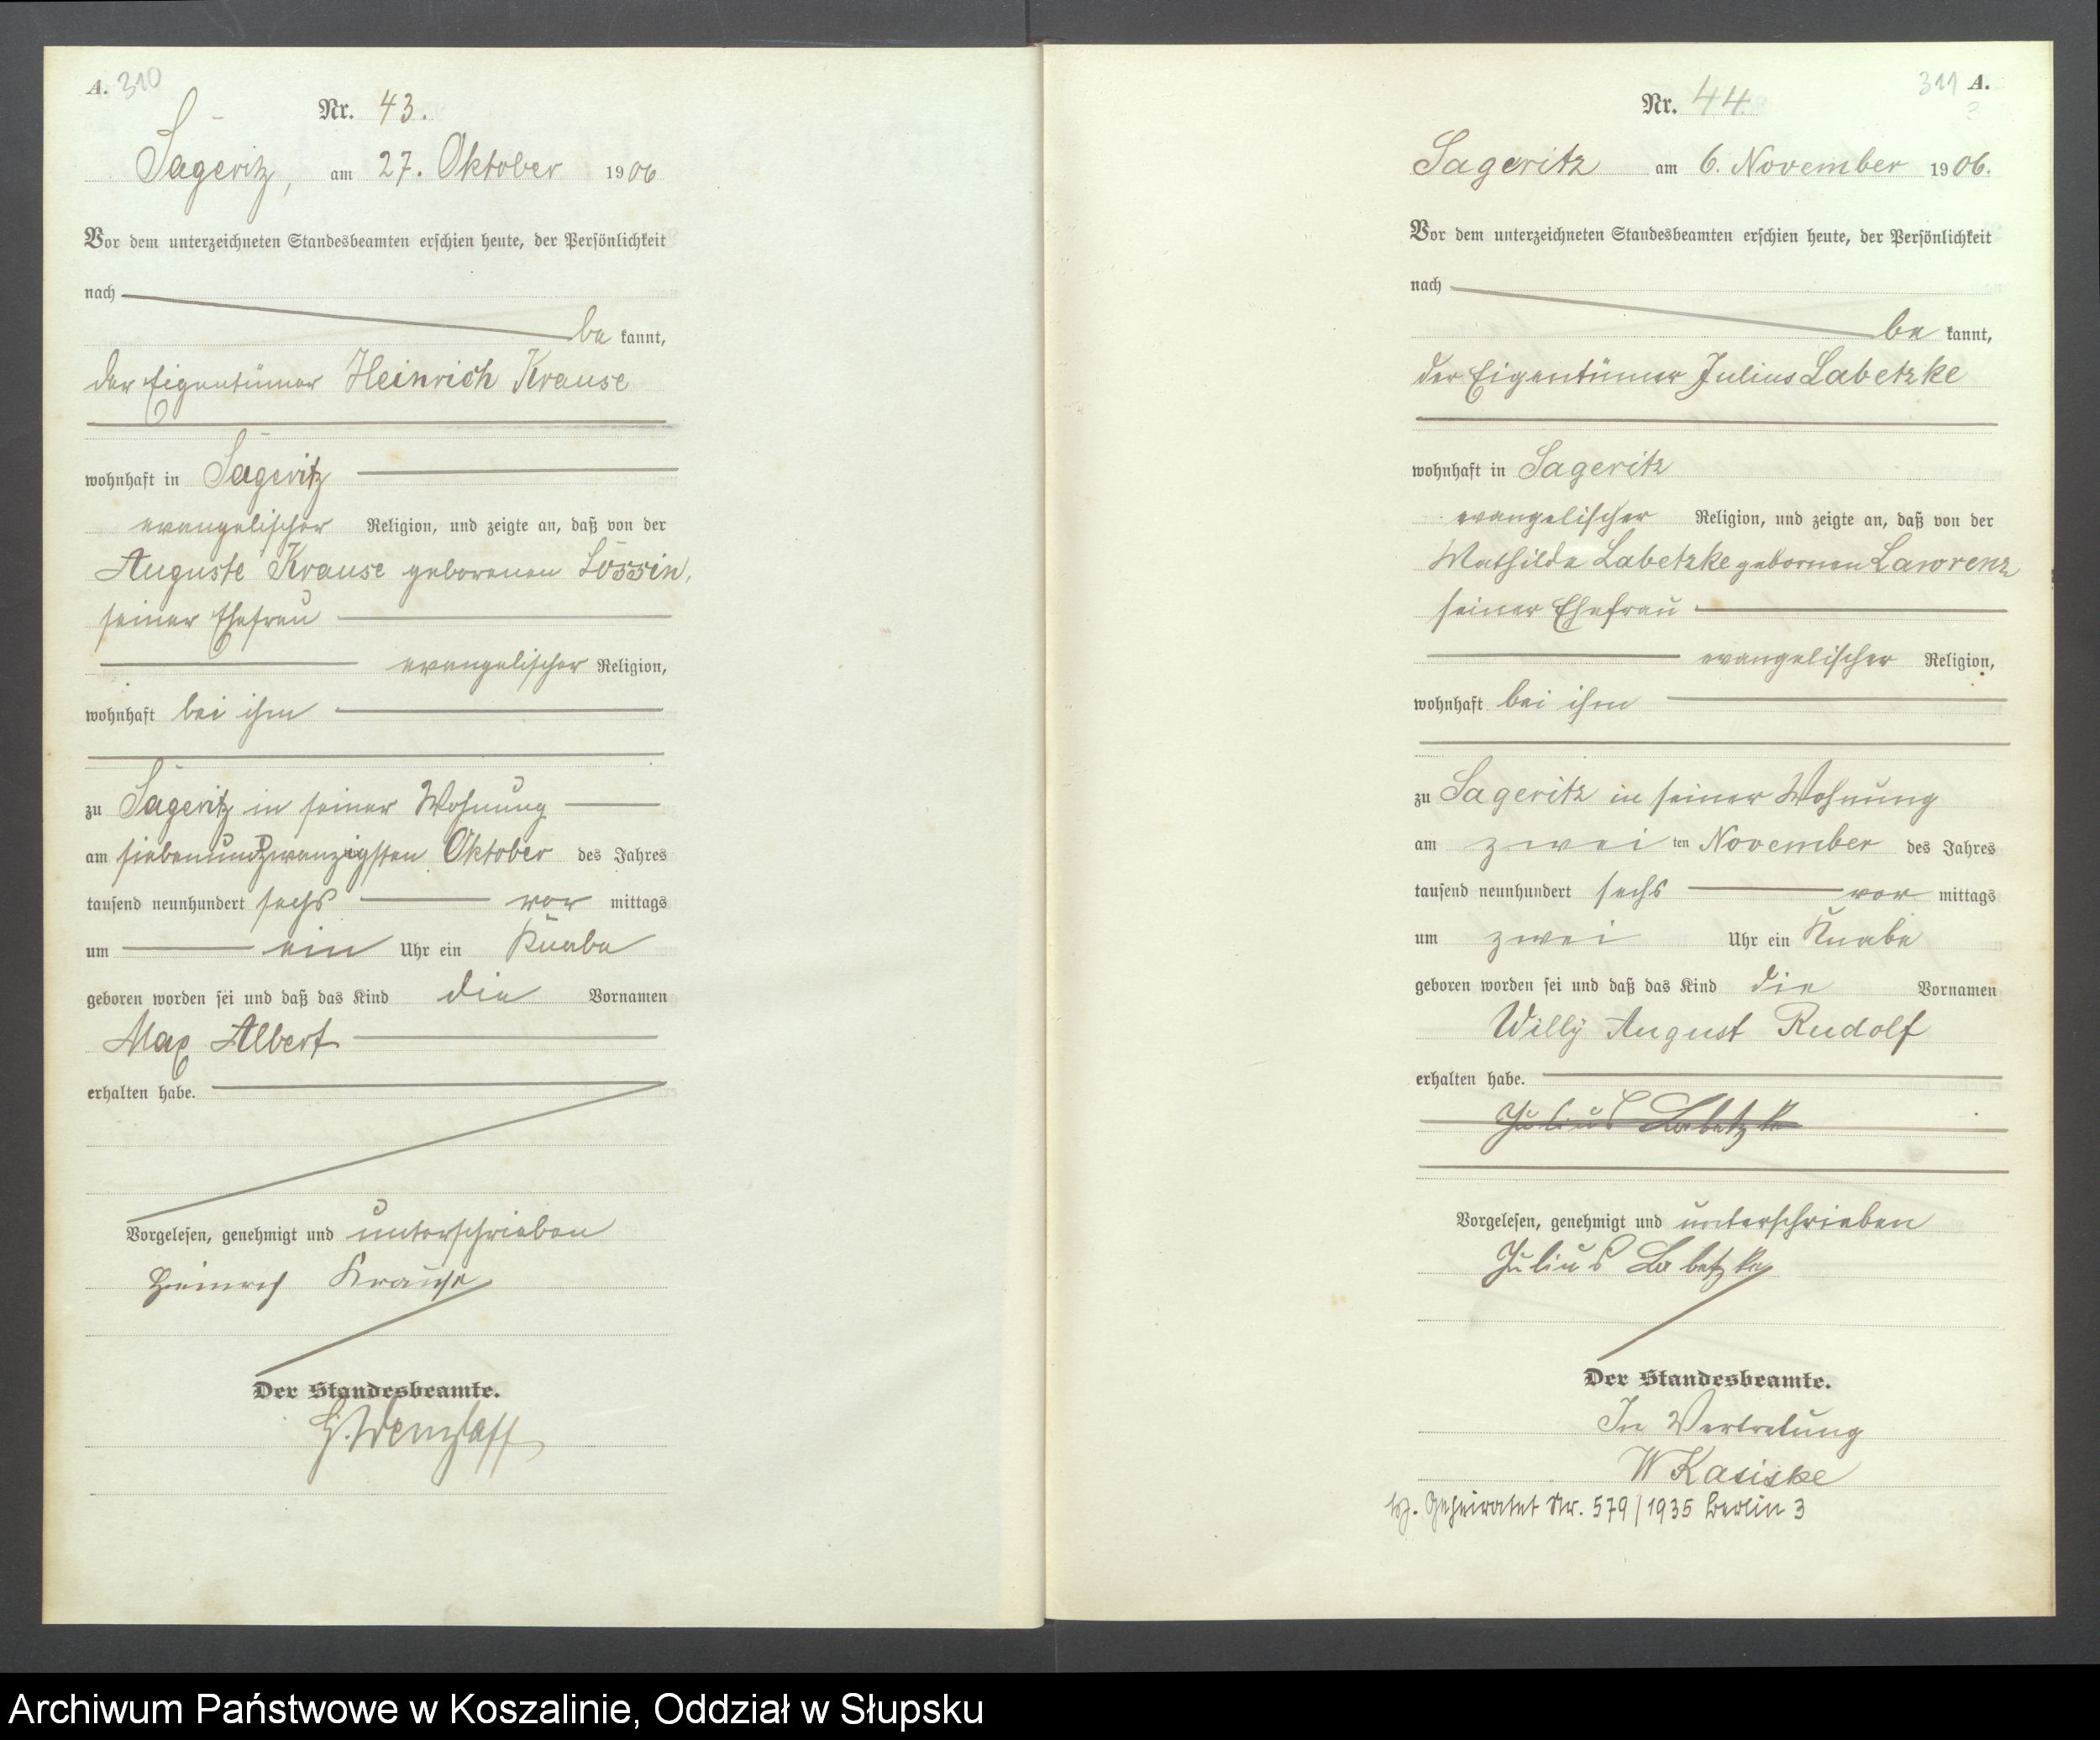 A. 310
Nr. 43.
Sageritz, am 27. Oktober 1906
Vor dem unterzeichneten Standesbeamten erschien heute, der Persönlichkeit
nach
be kannt,
der Eigentümer Heinrich Krause
wohnhaft in Sageritz
evangelischer Religion, und zeigte an, daß von der
Auguste Krause geborenen Lossin,
seiner Ehefrau
evangelischer Religion,
wohnhaft bei ihm
zu Sageritz in seiner Wohnung
am siebenundzwanzigsten Oktober des Jahres
tausend neunhundert sechs vor mittags
um ein Uhr ein Knabe
geboren worden sei und daß das Kind die Vornamen
Max Albert
erhalten habe.
Vorgelesen, genehmigt und unterschrieben
Heinrich Krause
Der Standesbeamte.
H. Wenzlaff
311 A.
Nr. 44.
Sageritz am 6. November 1906.
Vor dem unterzeichneten Standesbeamten erschien heute, der Persönlichkeit
nach
be kannt,
der Eigentümer Julius Labetzke
wohnhaft in Sageritz
evangelischer Religion, und zeigte an, daß von der
Mathilde Labetzke gebornen Lawrenz
seiner Ehefrau
evangelischer Religion,
wohnhaft bei ihm
zu Sageritz in seiner Wohnung
am zwei ten November des Jahres
tausend neunhundert sechs vor mittags
um zwei Uhr ein Knabe
geboren worden sei und daß das Kind die Vornamen
Willy August Rudolf
erhalten habe.
Julius Labetzke
Vorgelesen, genehmigt und unterschrieben
Julius Labetzke
Der Standesbeamte.
In Vertretung
W Kasiske
Geheiratet Nr. 579/1935 Berlin 3
Archiwum Państwowe w Koszalinie, Oddział w Słupsku